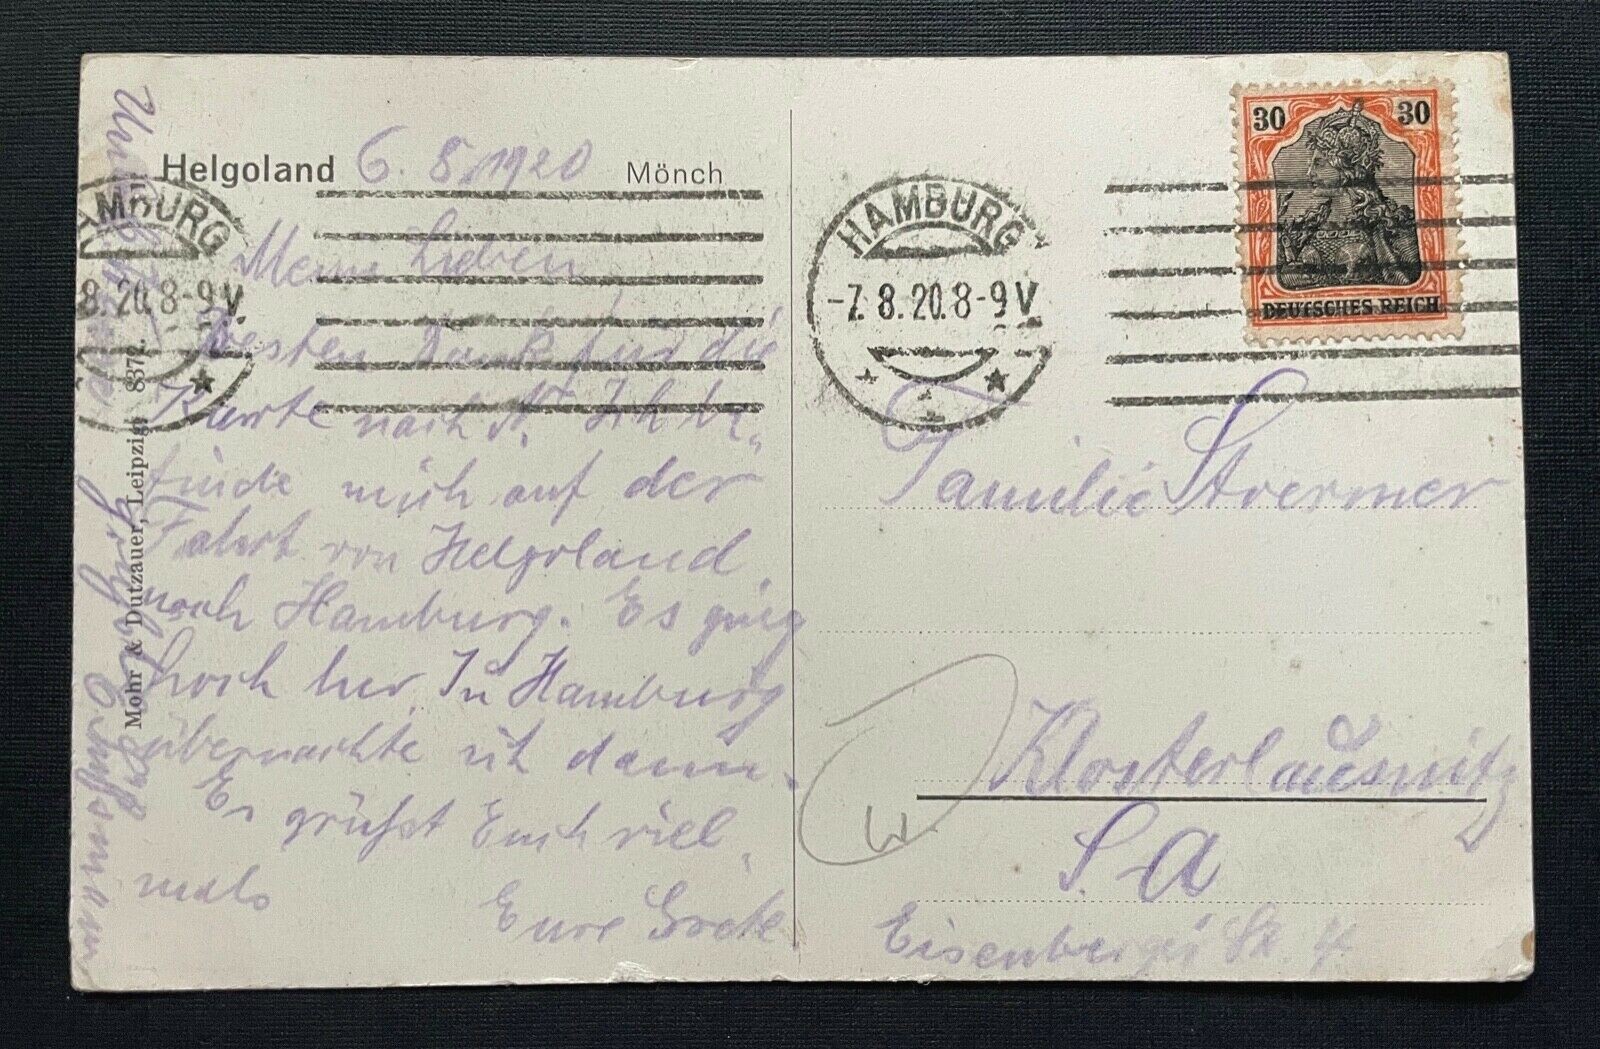 Helgoland 6.8.1920 Mönch
Meine Lieben
Besten Dank für die
Karte nach N. Ich be-
finde mich auf der
Fahrt von Helgoland
nach Hamburg. Es ging
hoch her. In Hamburg
übernachte ich dann.
Es grüßt Euch viel
mals
Eure Grete
Mohr & Dutzauer, Leipzig 8372.
HAMBURG
8.20.8-9V
HAMBURG
-7.8.20.8-9V
30 30
DEUTSCHES REICH
Familie Stoermer
Klosterlausnitz
S. A
Eisenberger St. 4
W.